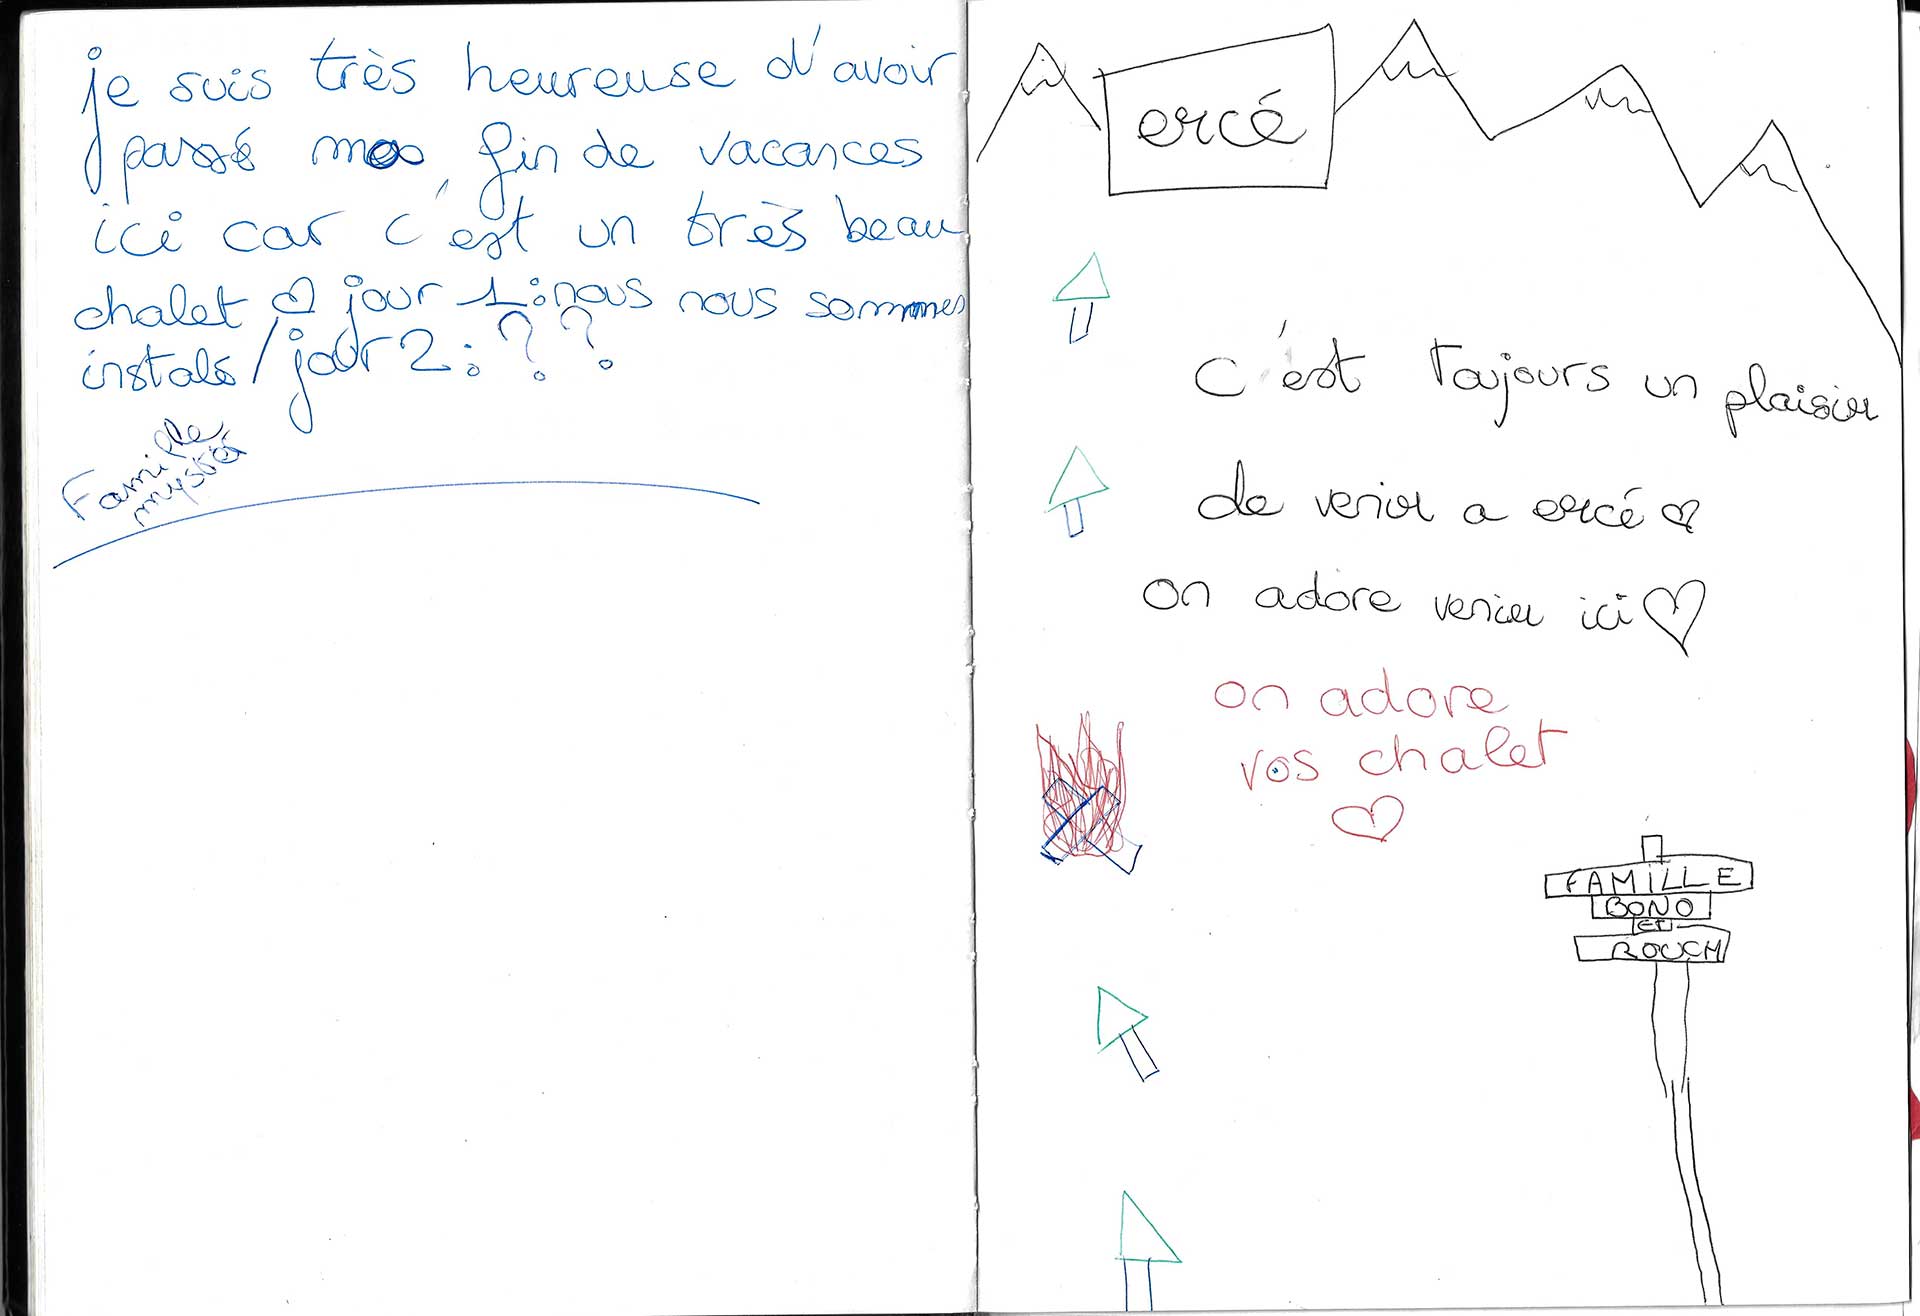 je suis très heureuse d'avoir
passé ma fin de vacances
ici car c'est un très beau
chalet ♡ jour 1 : nous nous sommes
instals / jour 2 : ? ?
Famille
mystè
ercé
c'est toujours un plaisir
de venir a ercé ♡
on adore venir ici ♡
on adore
vos chalet
♡
FAMILLE
BONO
et
ROUCH